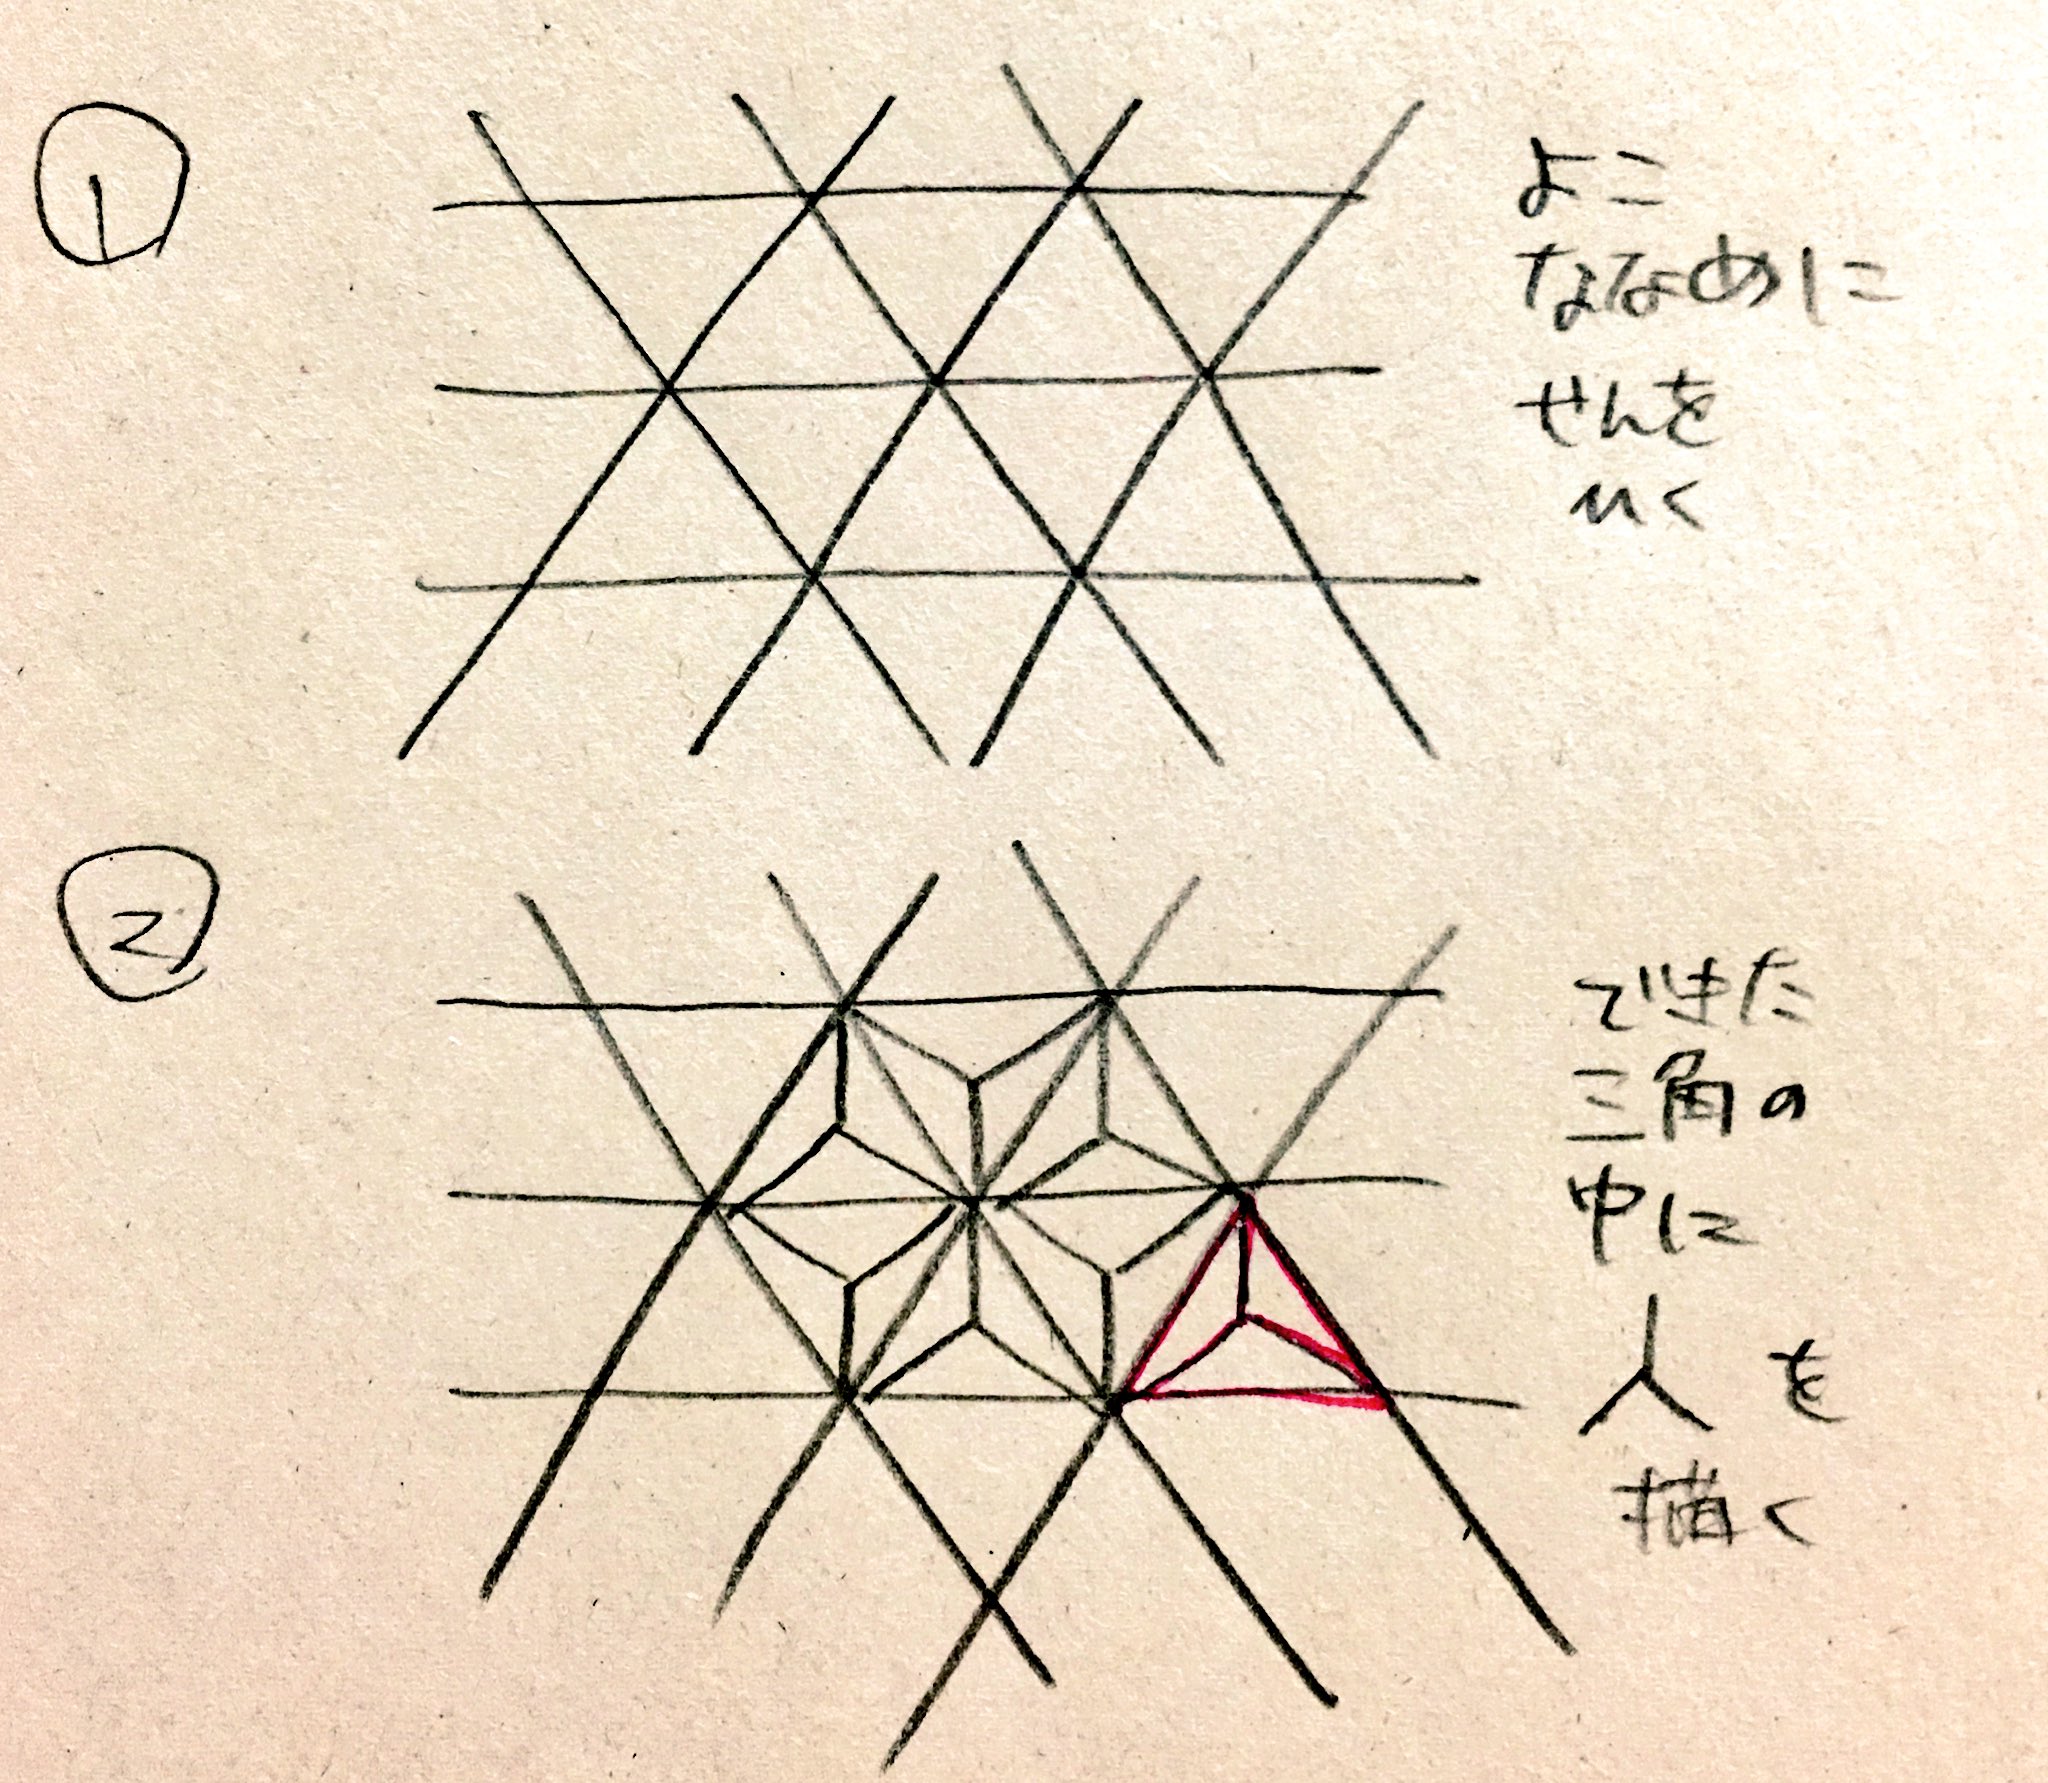 ①
よこ
ななめに
せんを
ひく
②
できた
三角の
中に
人を
描く